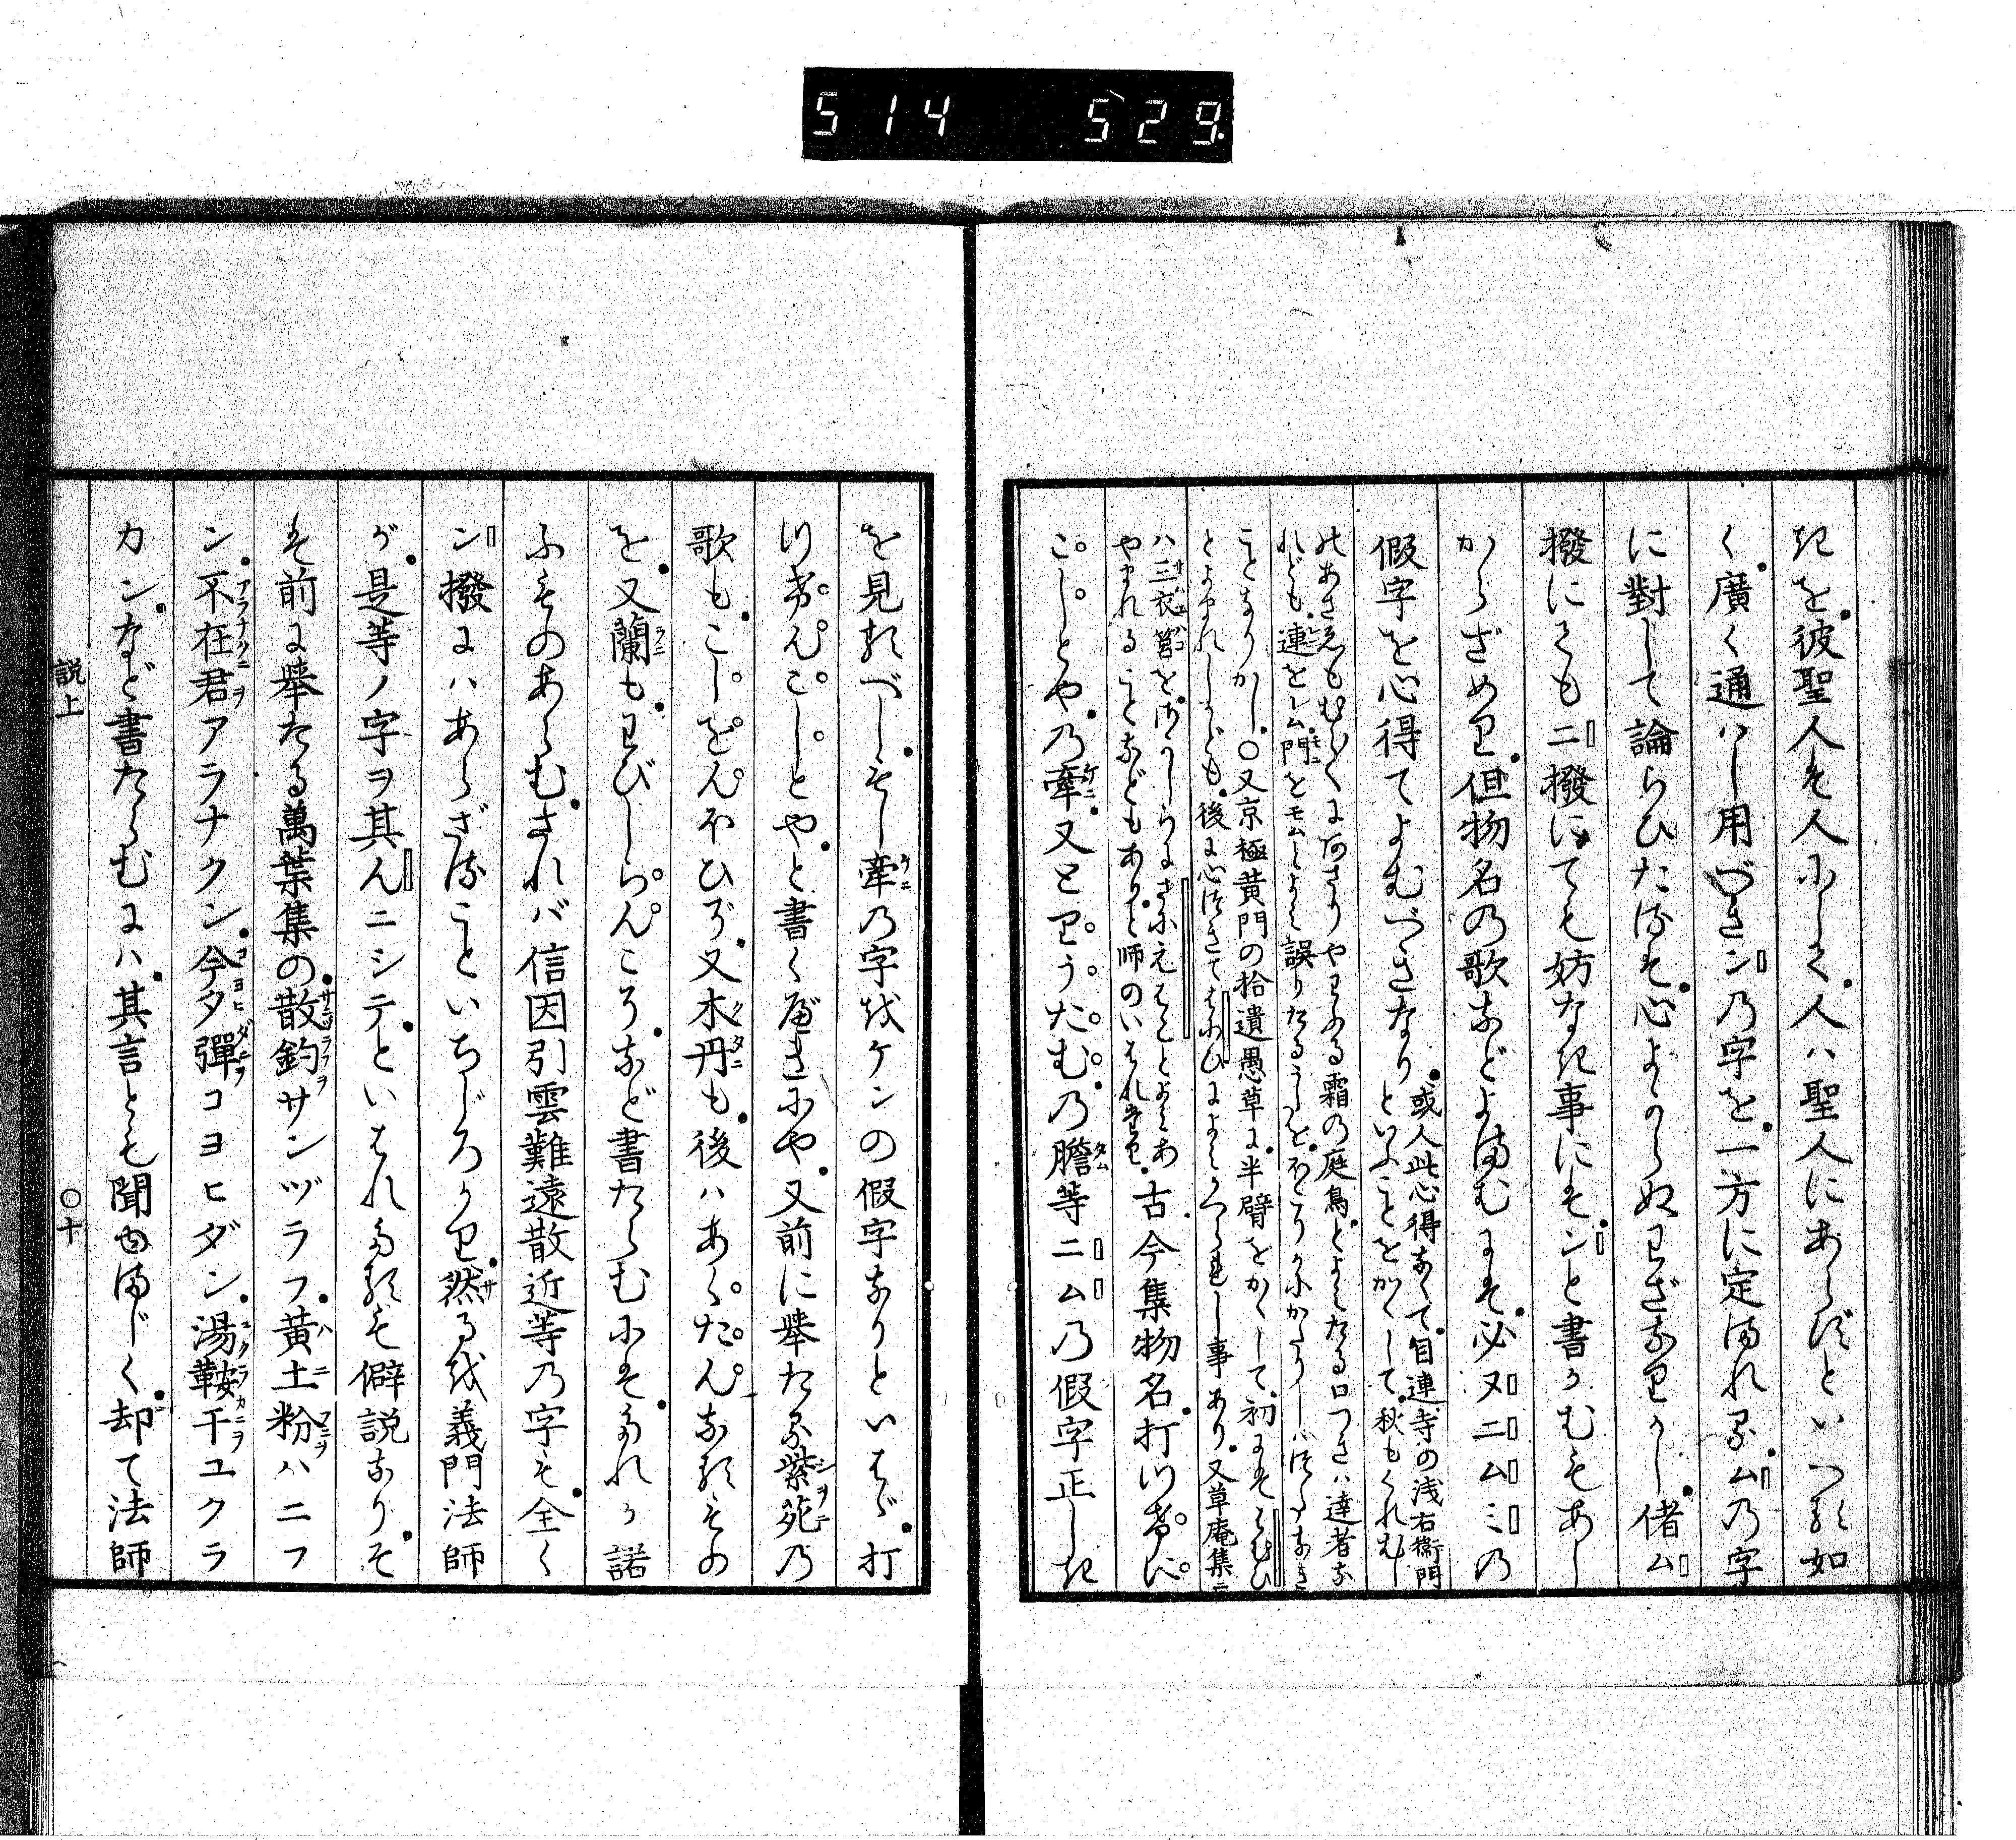 514 529.
きを。彼聖人も人にして。人ハ聖人にあらずといへる如
く。廣く通ハし用べきンの字を。一方に定まれる。ムの字
に對して論らひたるも。心よからぬわざなりかし。偖ム
撥にても二撥にても妨なき事にも。ンと書かむもあし
からざめり。但物名の歌などよまむにも。必ヌニムミの
假字を心得てよむべきなり。
或人此心得なくて。目連寺の浅右衛門
といふことをかくして。秋もくれむし
のあさゑもむらくに
やわぶる霜の庭鳥。とよみたる口つきハ達者な
れども。連をレム門をモムとよみ誤りたる
ことなりかし。○又京極黄門の拾遺愚草に。半臂をかくして。初にもはむひ
とよまれしかども。後に心づきてはにひによみかへられし事あり。又草庵集ニ
ハ三衣筥を
さにえはことよみあ
やまれることなどもあり。と師のいはれたり。
古今集物名。打つけに。
こしとや。の牽。又とりうたむ。の膽等ニムの假字正しき
を見るべし。もし牽の字をケンの假字なりといはゞ。打
つけんこしとや。と書くべきにや。又前に擧たる紫苑の
歌も。こしをんにほひが。又木丹も。後ハあらたんなるもの
を。又蘭も。わびしらんころ。など書たらむにも。たれか諾
ふものあらむ。されバ信因引雲難遠散近等の字も。全く
ン撥にハあらざることいちじろかり。然るを義門法師
が。是等ノ字ヲ其んニシテ。といはれたるも僻説なり。そ
も前に擧たる萬葉集の。散釣サンヅラフ。黄土粉ハニフ
ン。不在君アラナクン。今夕彈コヨヒダン。湯鞍干ユクラ
カン。など書たらむにハ。其言とも聞ゆまじく。却て法師
説上 ○十